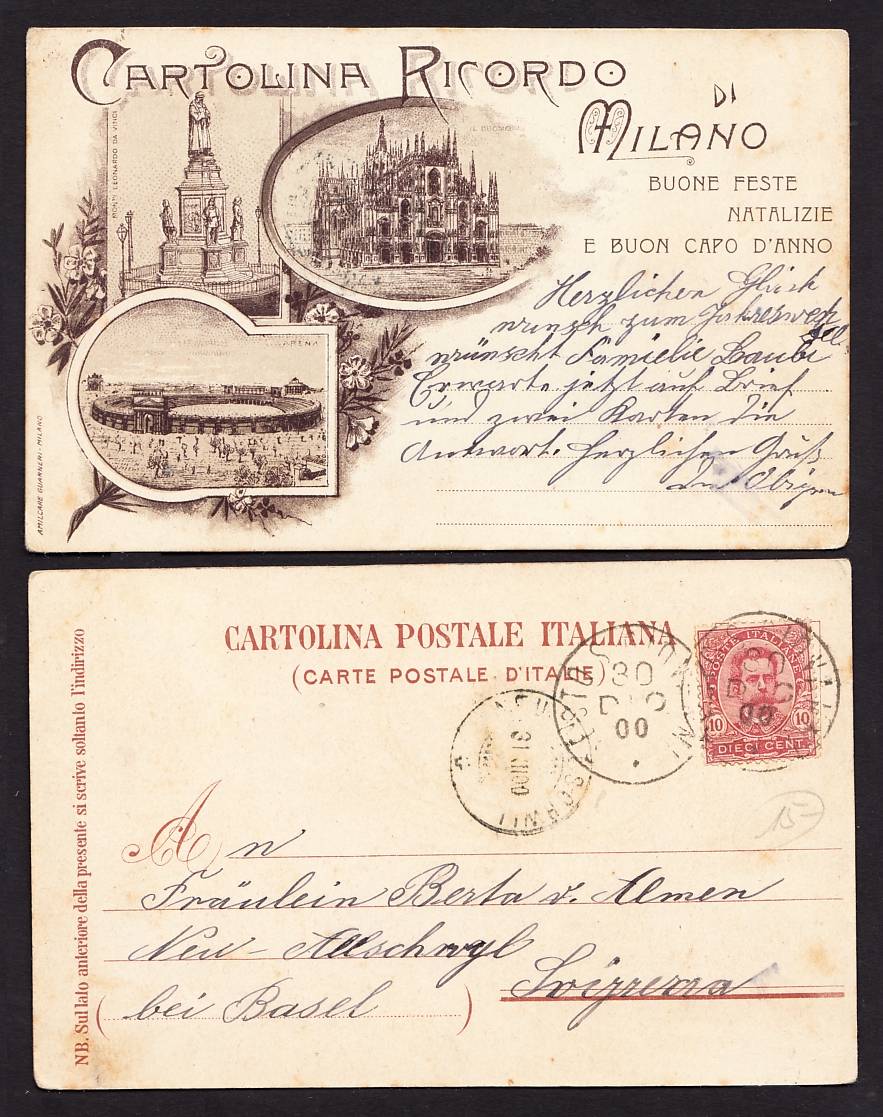 CARTOLINA RICORDO
DI
MILANO
BUONE FESTE
NATALIZIE
E BUON CAPO D'ANNO
MONTO LEONARDO DA VINCI
IL DUOMO
ARENA
AMILCARE GUARNERI - MILANO
Herzlichen Glück
wunsch zum Jahreswech
sel
wünscht Familie Laubi
Erwarte jetzt auf Brief
und zwei Karten die
Antwort. Herzlichen Gruß
die Obigen
CARTOLINA POSTALE ITALIANA
(CARTE POSTALE D'ITALIE)
NB. Sul lato anteriore della presente si scrive soltanto l'indirizzo
POSTE ITALIANE
10 10
DIECI CENT.
30
DIC
00
31 XII 00
15-
An
Fräulein Berta v. Almen
Neu-Allschwyl
(bei Basel)
Svizzera